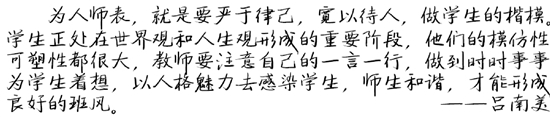 为人师表，就是要严于律己，宽以待人，做学生的楷模。
学生正处在世界观和人生观形成的重要阶段，他们的模仿性
可塑性都很大，教师要注意自己的一言一行，做到时时事事
为学生着想，以人格魅力去感染学生，师生和谐，才能形成
良好的班风。 ——吕南美